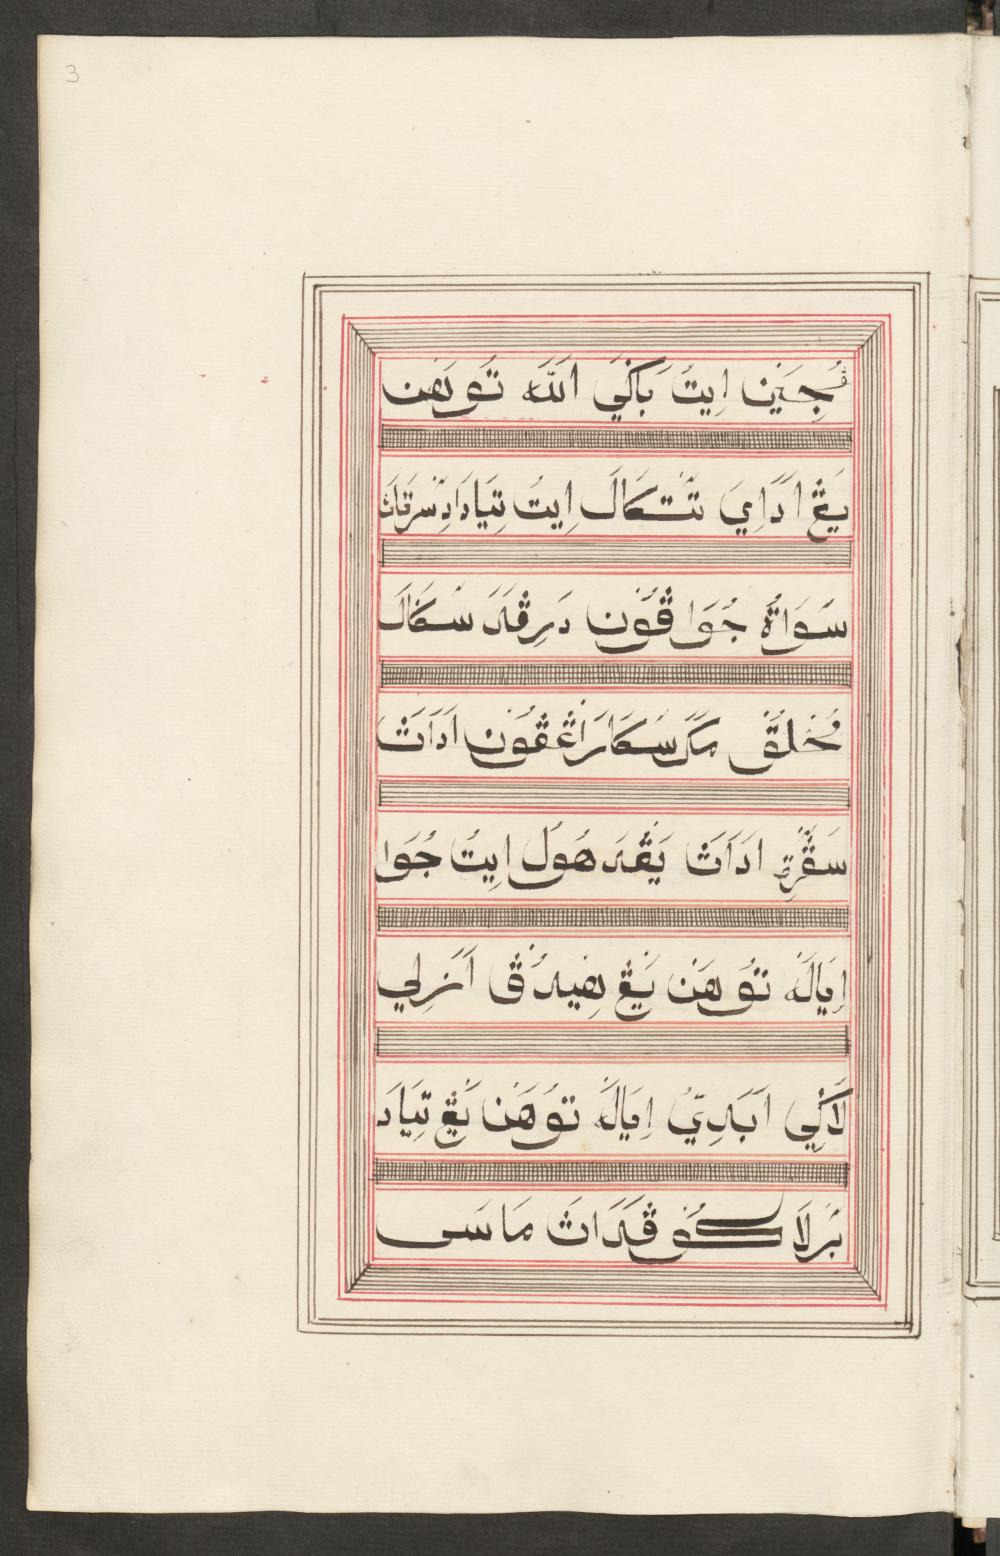 3
ڤُجِيَن اِيتُ بَاݢِي اَللّٰه تُوهَن
يَڠ اَدَاِيَ تَتَكَالَ اِيتُ تِيَادَ اَد سرت
سُوَاتُه جُوَا ڤُون دَرِڤَدَ سَكَالَ
مُخْلُق مَكَ سَكَارَڠْڤُون اَدَاث
سَڤَرتِ اَدَاث يَڠدَهُولُ اِيتُ جُوَا
اِيَالَه تُوهَن يَڠ هِيدُڤ اَزَلِي
لَاݢِي اَبَدِيُ اِيَالَه تُوهَن يَڠ تِيَادَ
بَرلَاكُو ڤَدَاث مَاسَى